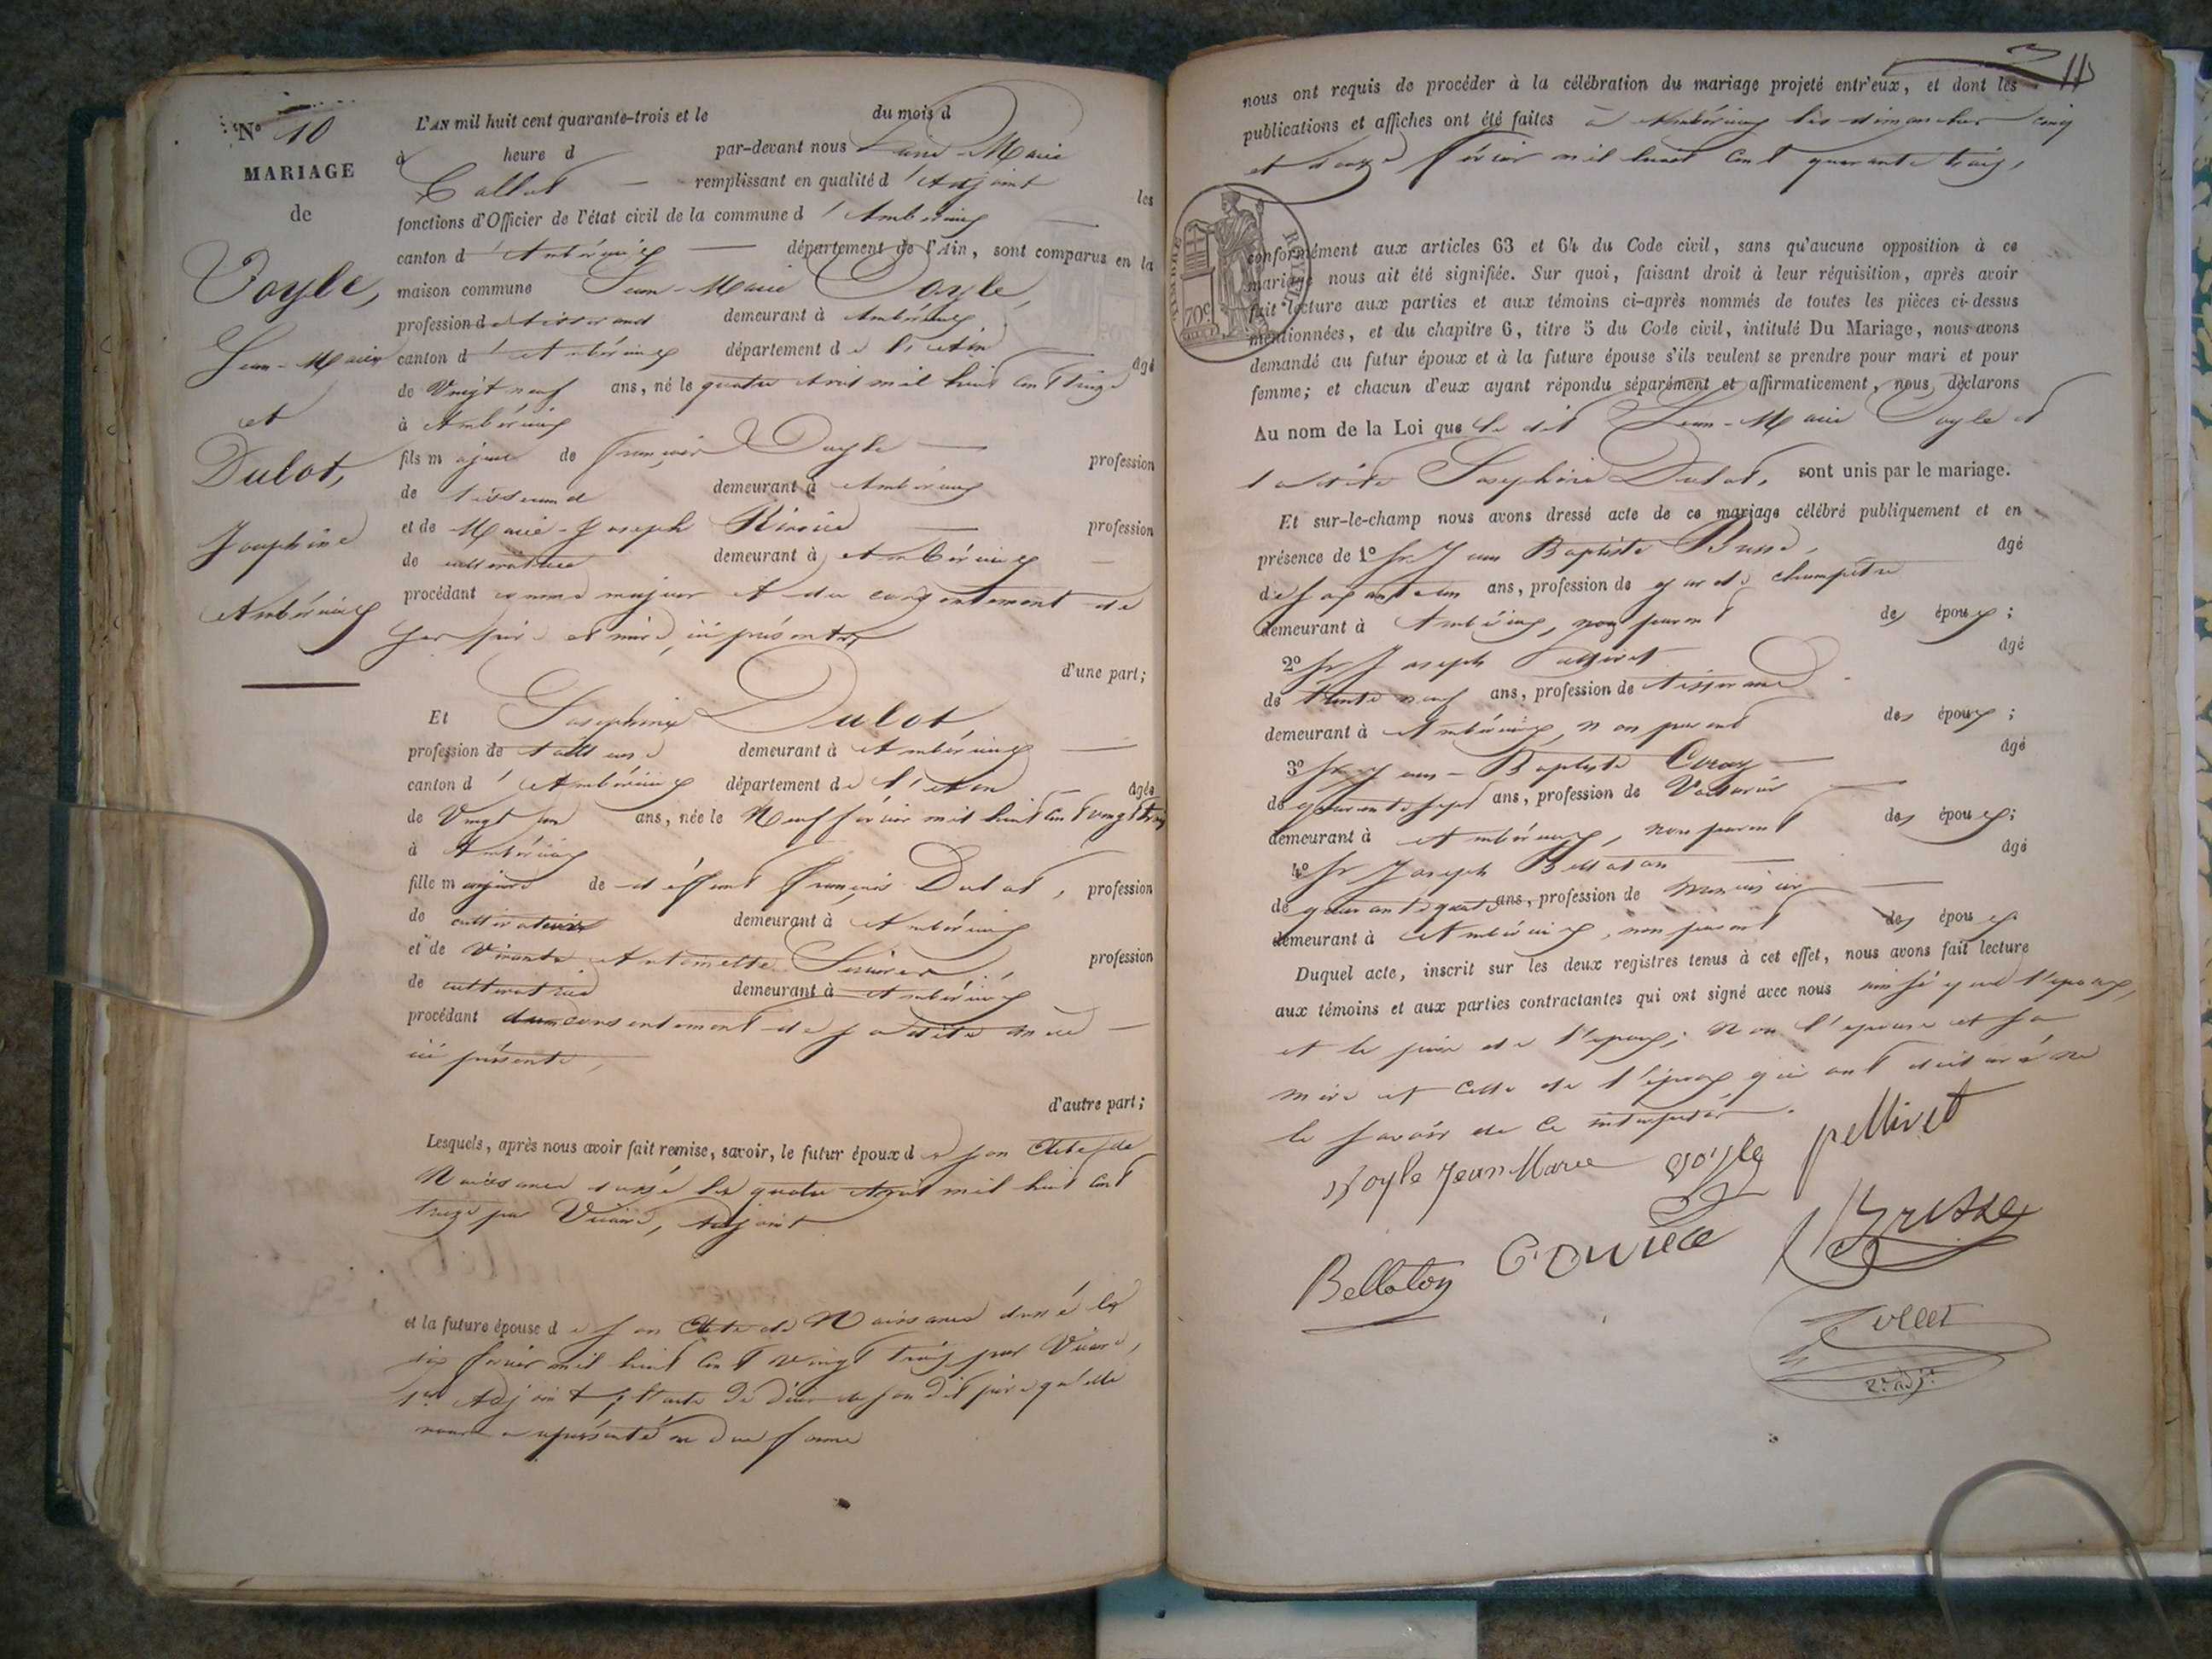 N° 10
MARIAGE
de
Doyle,
Jean-Marie
et
Dulot,
Josephine
Ambérieux
L'AN mil huit cent quarante-trois et le du mois d
à heure d par-devant nous Marie
remplissant en qualité d'Adjoint les
fonctions d'Officier de l'état civil de la commune d'Ambérieux
canton d'Ambérieux département de l'Ain, sont comparus en la
maison commune Jean-Marie Doyle,
profession de tisserand demeurant à Ambérieux
canton d'Ambérieux département de l'Ain âgé
de Vingt neuf ans, né le quatre Avril mil huit cent treize
à Ambérieux
fils majeur de françois Doyle profession
de tisserand demeurant à Ambérieux
et de Marie-Joseph profession
de cultivatrice demeurant à Ambérieux
procédant comme majeur et du consentement de
ses père et mère, ici présents
d'une part;
Et Josephine Dulot,
profession de tailleuse demeurant à Ambérieux
canton d'Ambérieux département de l'Ain âgée
de Vingt ans, née le Neuf février mil huit cent vingt trois
à Ambérieux
fille majeure de défunt françois Dulot, profession
de cultivateur demeurant à Ambérieux
et de Vivante Antoinette profession
de cultivatrice demeurant à Ambérieux
procédant du consentement de sa dite mère
ici présente,
d'autre part;
Lesquels, après nous avoir fait remise, savoir, le futur époux de son Acte de
Naissance dressé le quatre Avril mil huit cent
treize par Adjoint
et la future épouse de son Acte de Naissance dressé le
dix février mil huit cent vingt trois par
1er Adjoint, l'acte de décès de son dit père qu'elle
nous a représenté en due forme
11
nous ont requis de procéder à la célébration du mariage projeté entr'eux, et dont les
publications et affiches ont été faites à Ambérieux les dimanches cinq
et douze février mil huit cent quarante trois,
TIMBRE ROYAL
70c
conformément aux articles 63 et 64 du Code civil, sans qu'aucune opposition à ce
mariage nous ait été signifiée. Sur quoi, faisant droit à leur réquisition, après avoir
fait lecture aux parties et aux témoins ci-après nommés de toutes les pièces ci-dessus
mentionnées, et du chapitre 6, titre 5 du Code civil, intitulé Du Mariage, nous avons
demandé au futur époux et à la future épouse s'ils veulent se prendre pour mari et pour
femme; et chacun d'eux ayant répondu séparément et affirmativement, nous déclarons
Au nom de la Loi que le dit Jean-Marie Doyle et
la dite Josephine Dulot, sont unis par le mariage.
Et sur-le-champ nous avons dressé acte de ce mariage célébré publiquement et en
présence de 1° Sr Jean Baptiste Brusse, âgé
de ans, profession de garde champêtre
demeurant à Ambérieux, non parent des époux;
2° Sr Joseph Pellivet âgé
de trente neuf ans, profession de tisserand
demeurant à Ambérieux, non parent des époux;
3° Sr Jean-Baptiste âgé
de quarante sept ans, profession de Voiturier
demeurant à Ambérieux, non parent des époux;
4° Sr Joseph Bellaton âgé
de quarante ans, profession de menuisier
demeurant à Ambérieux, non parent des époux
Duquel acte, inscrit sur les deux registres tenus à cet effet, nous avons fait lecture
aux témoins et aux parties contractantes qui ont signé avec nous ainsi que l'époux,
et le père de l'époux; non l'épouse et sa
mère et celle de l'époux qui ont déclaré ne
le savoir de ce interpellés.
Doyle Jean Marie doyle pellivet
Bellaton Brusse
2e adjt